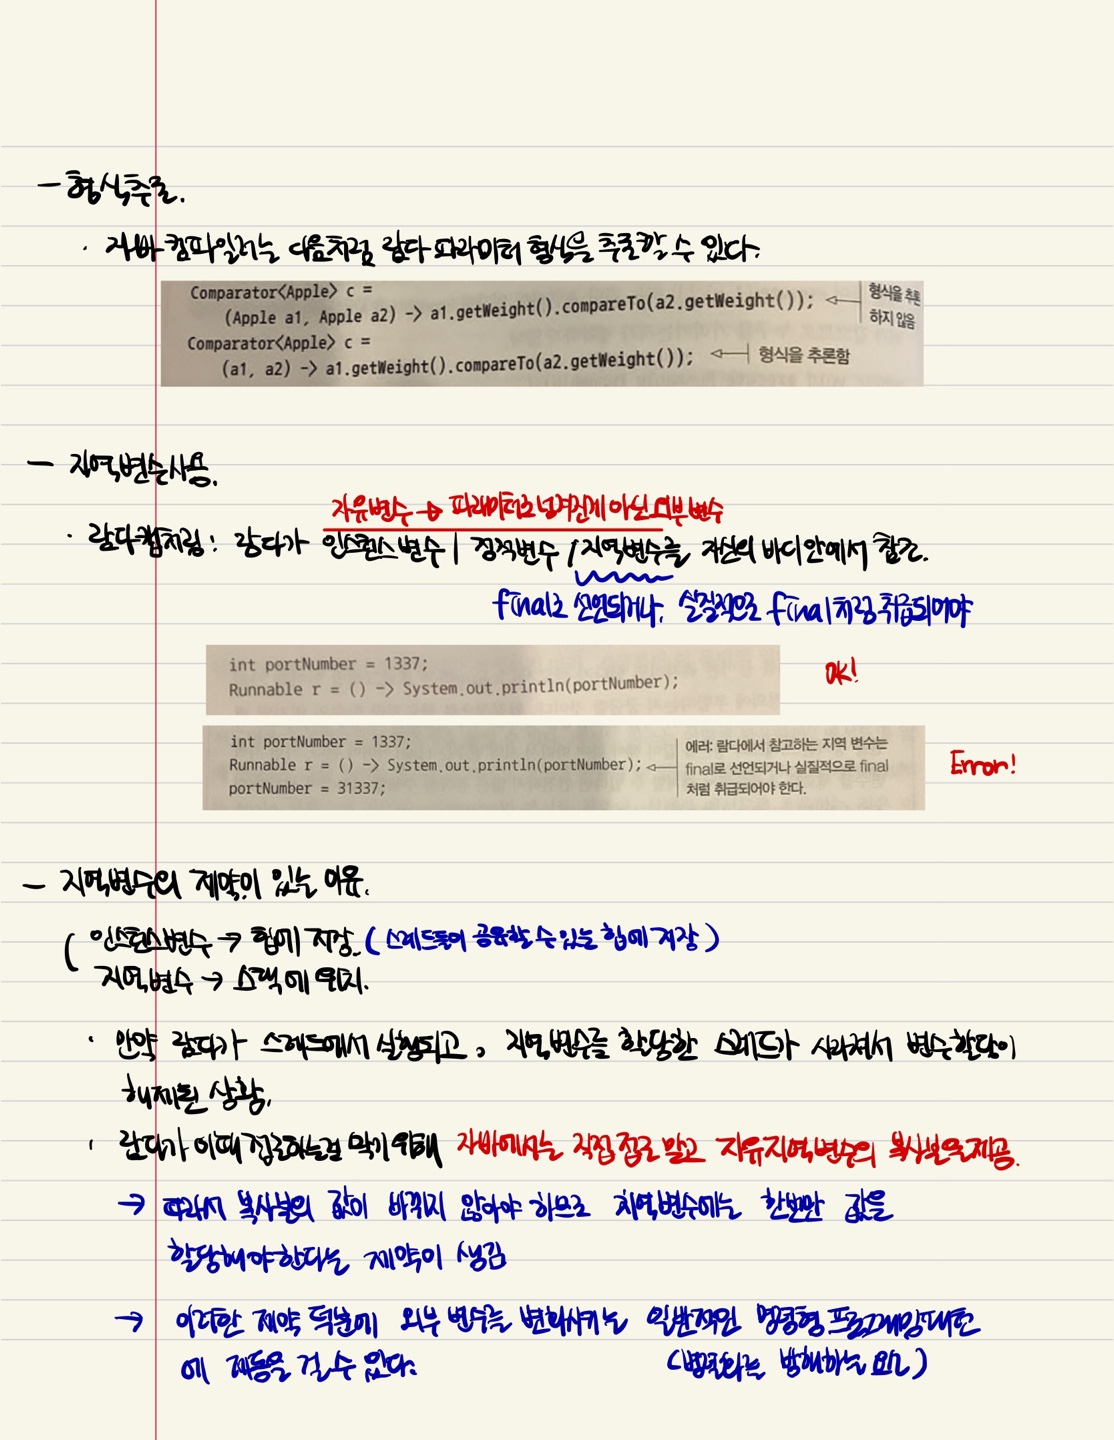 - 형식추론.
· 자바 컴파일러는 다음처럼 람다 파라미터 형식을 추론할 수 있다.
Comparator<Apple> c =
(Apple a1, Apple a2) -> a1.getWeight().compareTo(a2.getWeight());
형식을 추론
하지 않음
Comparator<Apple> c =
(a1, a2) -> a1.getWeight().compareTo(a2.getWeight());
형식을 추론함
- 지역변수사용.
자유변수 → 파라미터로 넘겨진게 아닌 외부 변수
· 람다캡처링: 람다가 인스턴스 변수 / 정적변수 / 지역변수를 자신의 바디 안에서 참조.
final로 선언되거나, 실질적으로 final처럼 취급되어야
int portNumber = 1337;
Runnable r = () -> System.out.println(portNumber);
OK!
int portNumber = 1337;
Runnable r = () -> System.out.println(portNumber);
portNumber = 31337;
에러: 람다에서 참고하는 지역 변수는
final로 선언되거나 실질적으로 final
처럼 취급되어야 한다.
Error!
- 지역변수의 제약이 있는 이유.
( 인스턴스변수 → 힙에 저장. (스레드들이 공유할 수 있는 힙에 저장)
지역변수 → 스택에 위치.
· 만약 람다가 스레드에서 실행되고, 지역변수를 할당한 스레드가 사라져서 변수할당이
해제된 상황.
· 람다가 이때 접근하는걸 막기 위해 자바에서는 직접 접근 말고 자유지역변수의 복사본을 제공.
→ 따라서 복사본의 값이 바뀌지 않아야 하므로 지역변수에는 한번만 값을
할당해야한다는 제약이 생김
→ 이러한 제약 덕분에 외부 변수를 변화시키는 일반적인 명령형 프로그래밍패턴
에 제동을 걸 수 있다.
(병렬화를 방해하는 요소)